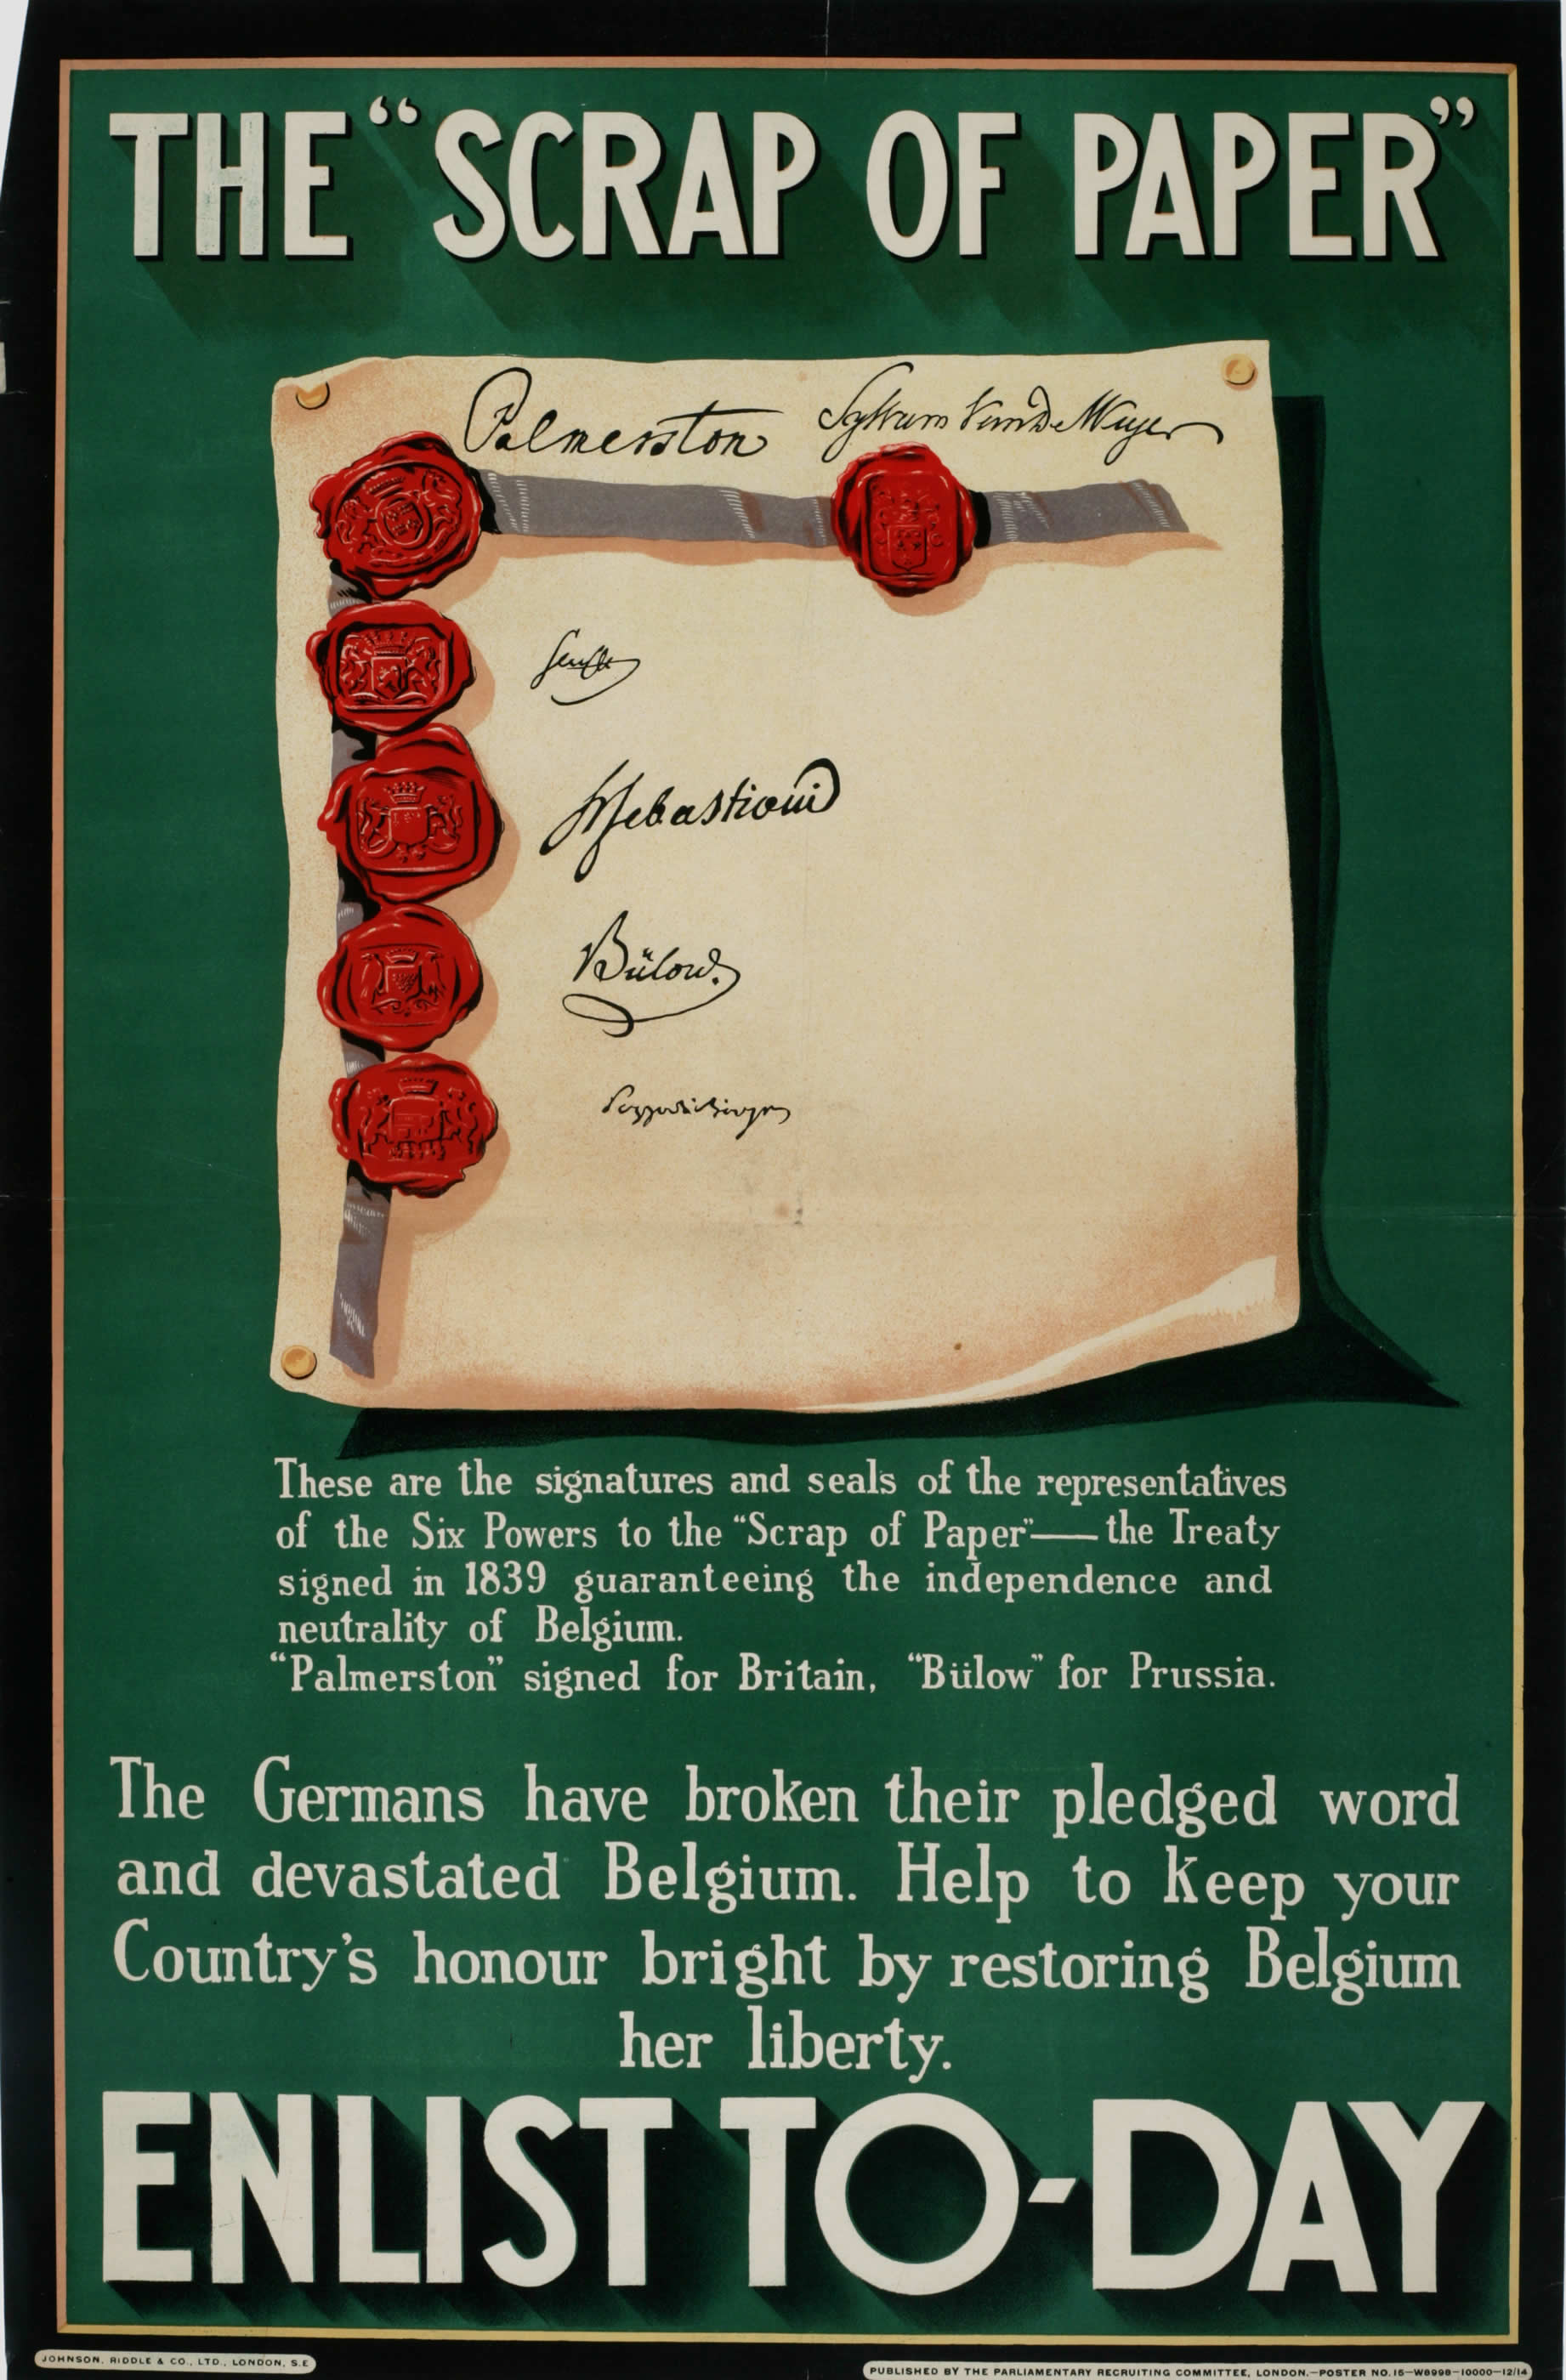 THE “SCRAP OF PAPER”
Palmerston Sylvain Van de Weyer
Senfft
H Sebastiani
Bülow.
Pozzo di Borgo
These are the signatures and seals of the representatives
of the Six Powers to the “Scrap of Paper”—the Treaty
signed in 1839 guaranteeing the independence and
neutrality of Belgium.
“Palmerston” signed for Britain, “Bülow” for Prussia.
The Germans have broken their pledged word
and devastated Belgium. Help to keep your
Country's honour bright by restoring Belgium
her liberty.
ENLIST TO-DAY
JOHNSON, RIDDLE & CO., LTD., LONDON, S.E.
PUBLISHED BY THE PARLIAMENTARY RECRUITING COMMITTEE, LONDON.—POSTER NO. 15—W8998—10000—12/14